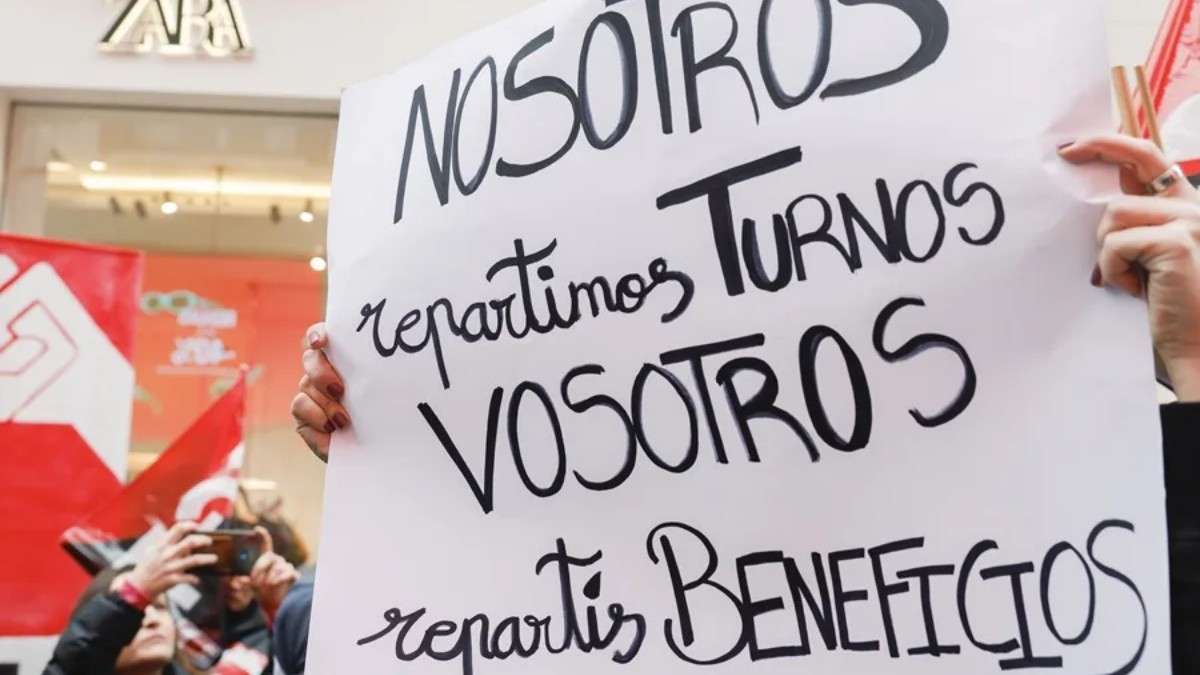 ZARA
NOSOTROS
repartimos TURNOS
VOSOTROS
repartís BENEFICIOS